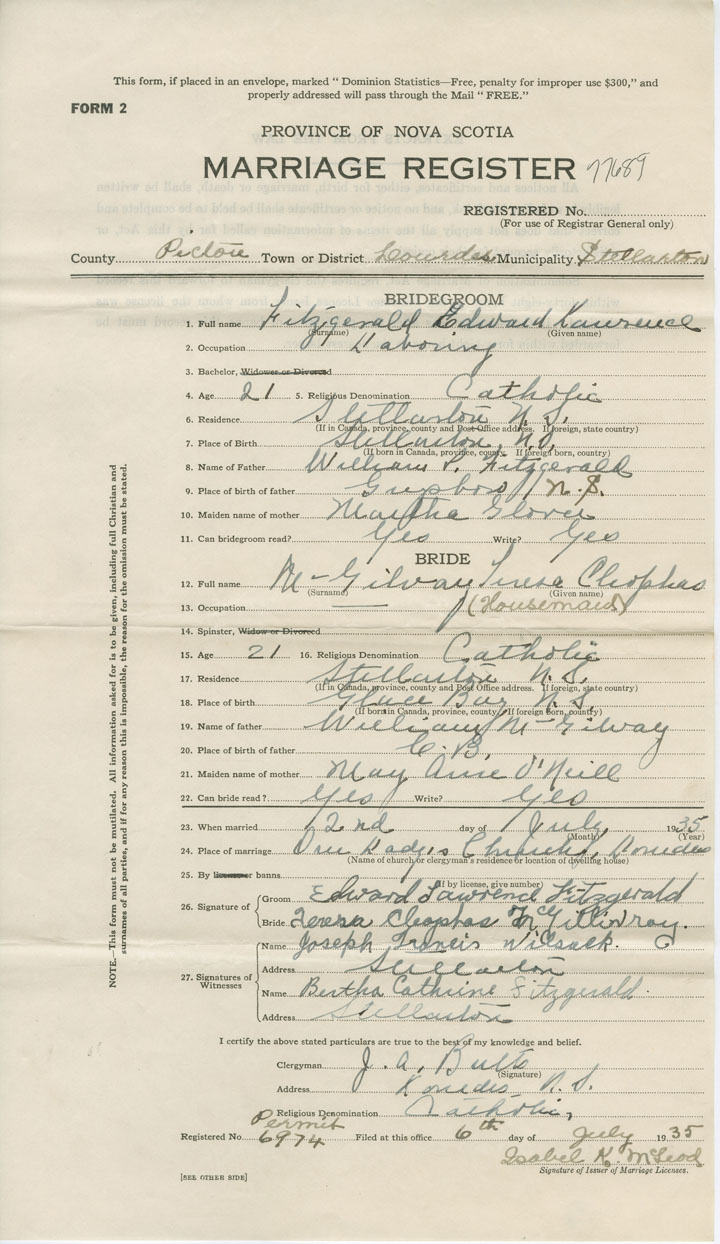 This form, if placed in an envelope, marked " Dominion Statistics—Free, penalty for improper use $300," and
properly addressed will pass through the Mail " FREE."
FORM 2
PROVINCE OF NOVA SCOTIA
MARRIAGE REGISTER 77689
REGISTERED No.
(For use of Registrar General only)
County Pictou Town or District Lourdes Municipality Stellarton
BRIDEGROOM
1. Full name Fitzgerald Edward Lawrence
(Surname) (Given name)
2. Occupation Laboring
3. Bachelor, Widower or Divorced
4. Age 21 5. Religious Denomination Catholic
6. Residence Stellarton N.S.
(If in Canada, province, county and Post Office address. If foreign, state country)
7. Place of Birth Stellarton, N.S.
(If born in Canada, province, county. If foreign born, country)
8. Name of Father William P. Fitzgerald
9. Place of birth of father Guysboro, N.S.
10. Maiden name of mother Martha Glover
11. Can bridegroom read? Yes Write? Yes
BRIDE
12. Full name McGilvay Teresa Cleophas
(Surname) (Given name)
13. Occupation — (Housemaid)
14. Spinster, Widow or Divorced
15. Age 21 16. Religious Denomination Catholic
17. Residence Stellarton N.S.
(If in Canada, province, county and Post Office address. If foreign, state country)
18. Place of birth Glace Bay N.S.
(If born in Canada, province, county. If foreign born, country)
19. Name of father William McGilvay
20. Place of birth of father C.B.
21. Maiden name of mother May Anne O'Neill
22. Can bride read? Yes Write? Yes
23. When married 2nd day of July 1935
(Month) (Year)
24. Place of marriage Our Ladys Church, Lourdes
(Name of church or clergyman's residence or location of dwelling house)
25. By license or banns
(If by license, give number)
26. Signature of Groom Edward Lawrence Fitzgerald
Bride Teresa Cleophas McGillivray.
27. Signatures of Witnesses
Name Joseph Francis
Address Stellarton
Name Bertha Cathrine Fitzgerald.
Address Stellarton
I certify the above stated particulars are true to the best of my knowledge and belief.
Clergyman J. A. Butts
(Signature)
Address Lourdes N.S.
Religious Denomination Catholic,
Permit
Registered No. 6974 Filed at this office 6th day of July 1935
Isabel K. McLeod
Signature of Issuer of Marriage Licenses.
[SEE OTHER SIDE]
NOTE.—This form must not be mutilated. All information asked for is to be given, including full Christian and
surnames of all parties, and if for any reason this is impossible, the reason for the omission must be stated.